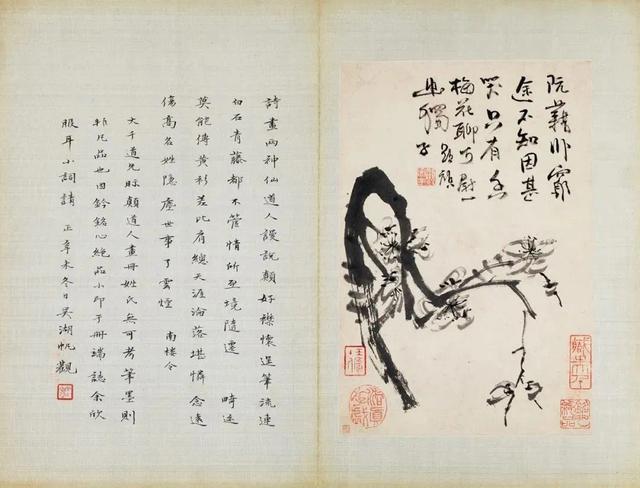 阮藉窮
途不知因甚
哭只有
梅花聊可慰
幽獨
詩畫兩神仙道人謾說顛好襟懷選筆流連
白石青藤都不管情所至境隨遷 時
莫能傳黃差比肩總天涯淪落堪憐念遠
傷高名姓隱塵世事了雲煙 南樓令
大千道兄眎顛道人畫冊姓氏無可考筆墨則
非凡品也因鈐銘心絕品小印于冊端誌余欣
服耳小詞請 正辛未冬日吳湖帆觀